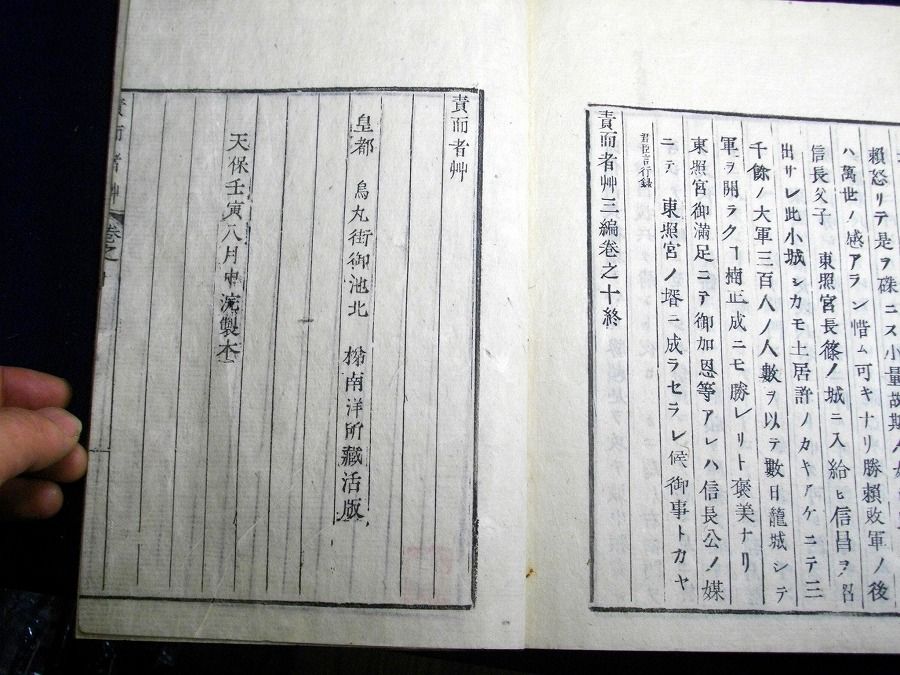 頼怒リテ是ヲ磔ニス小量故斯
ハ萬世ノ感アラン惜ム可キナリ勝頼敗軍ノ後
信長父子 東照宮長篠ノ城ニ入給ヒ信昌ヲ召
出サレ此小城シカモ土居許ノカキアケニテ三
千餘ノ大軍三百人ノ人數ヲ以テ數日籠城シテ
軍ヲ開ラクヿ楠正成ニモ勝レリト褒美ナリ
東照宮御滿足ニテ御加恩等アレハ信長公ノ媒
ニテ 東照宮ノ壻ニ成ラセラレ候御事トカヤ
君臣言行録
責而者艸三編卷之十終
責而者艸
皇都 烏丸街御池北 南洋所藏活版
天保壬寅八月中浣製本
責而者艸 卷之